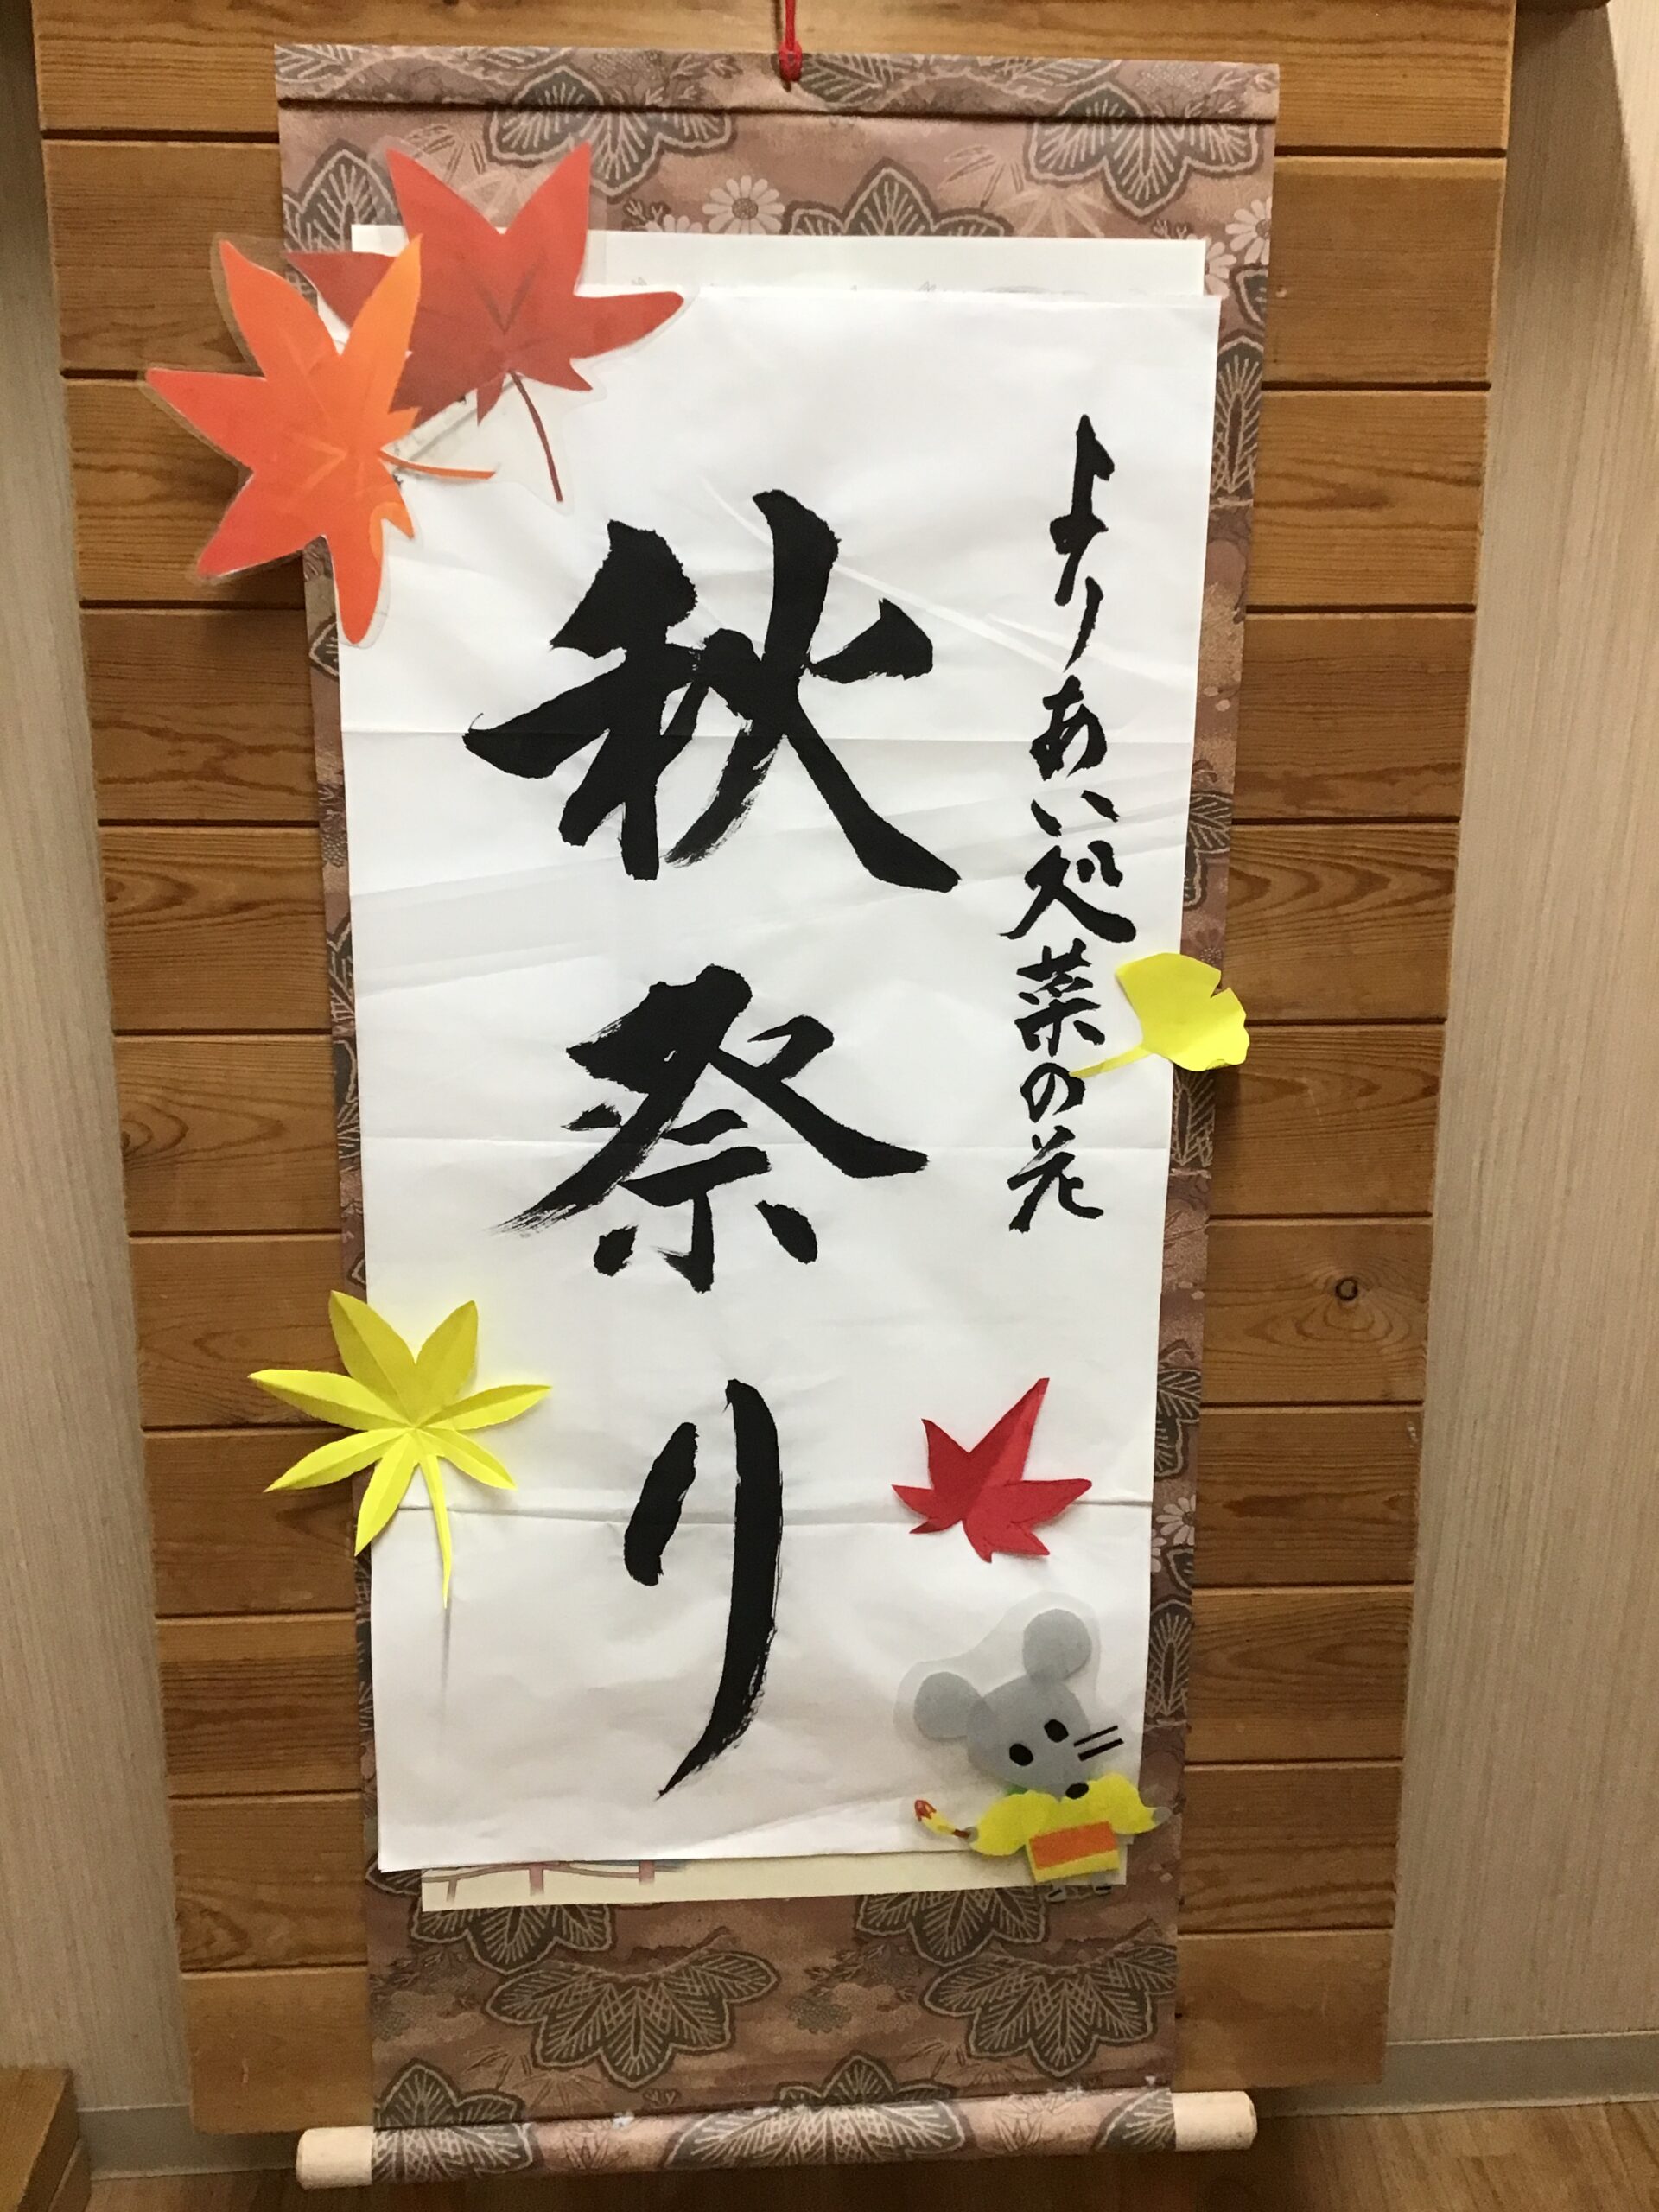 よりあい処菜の花
秋祭り